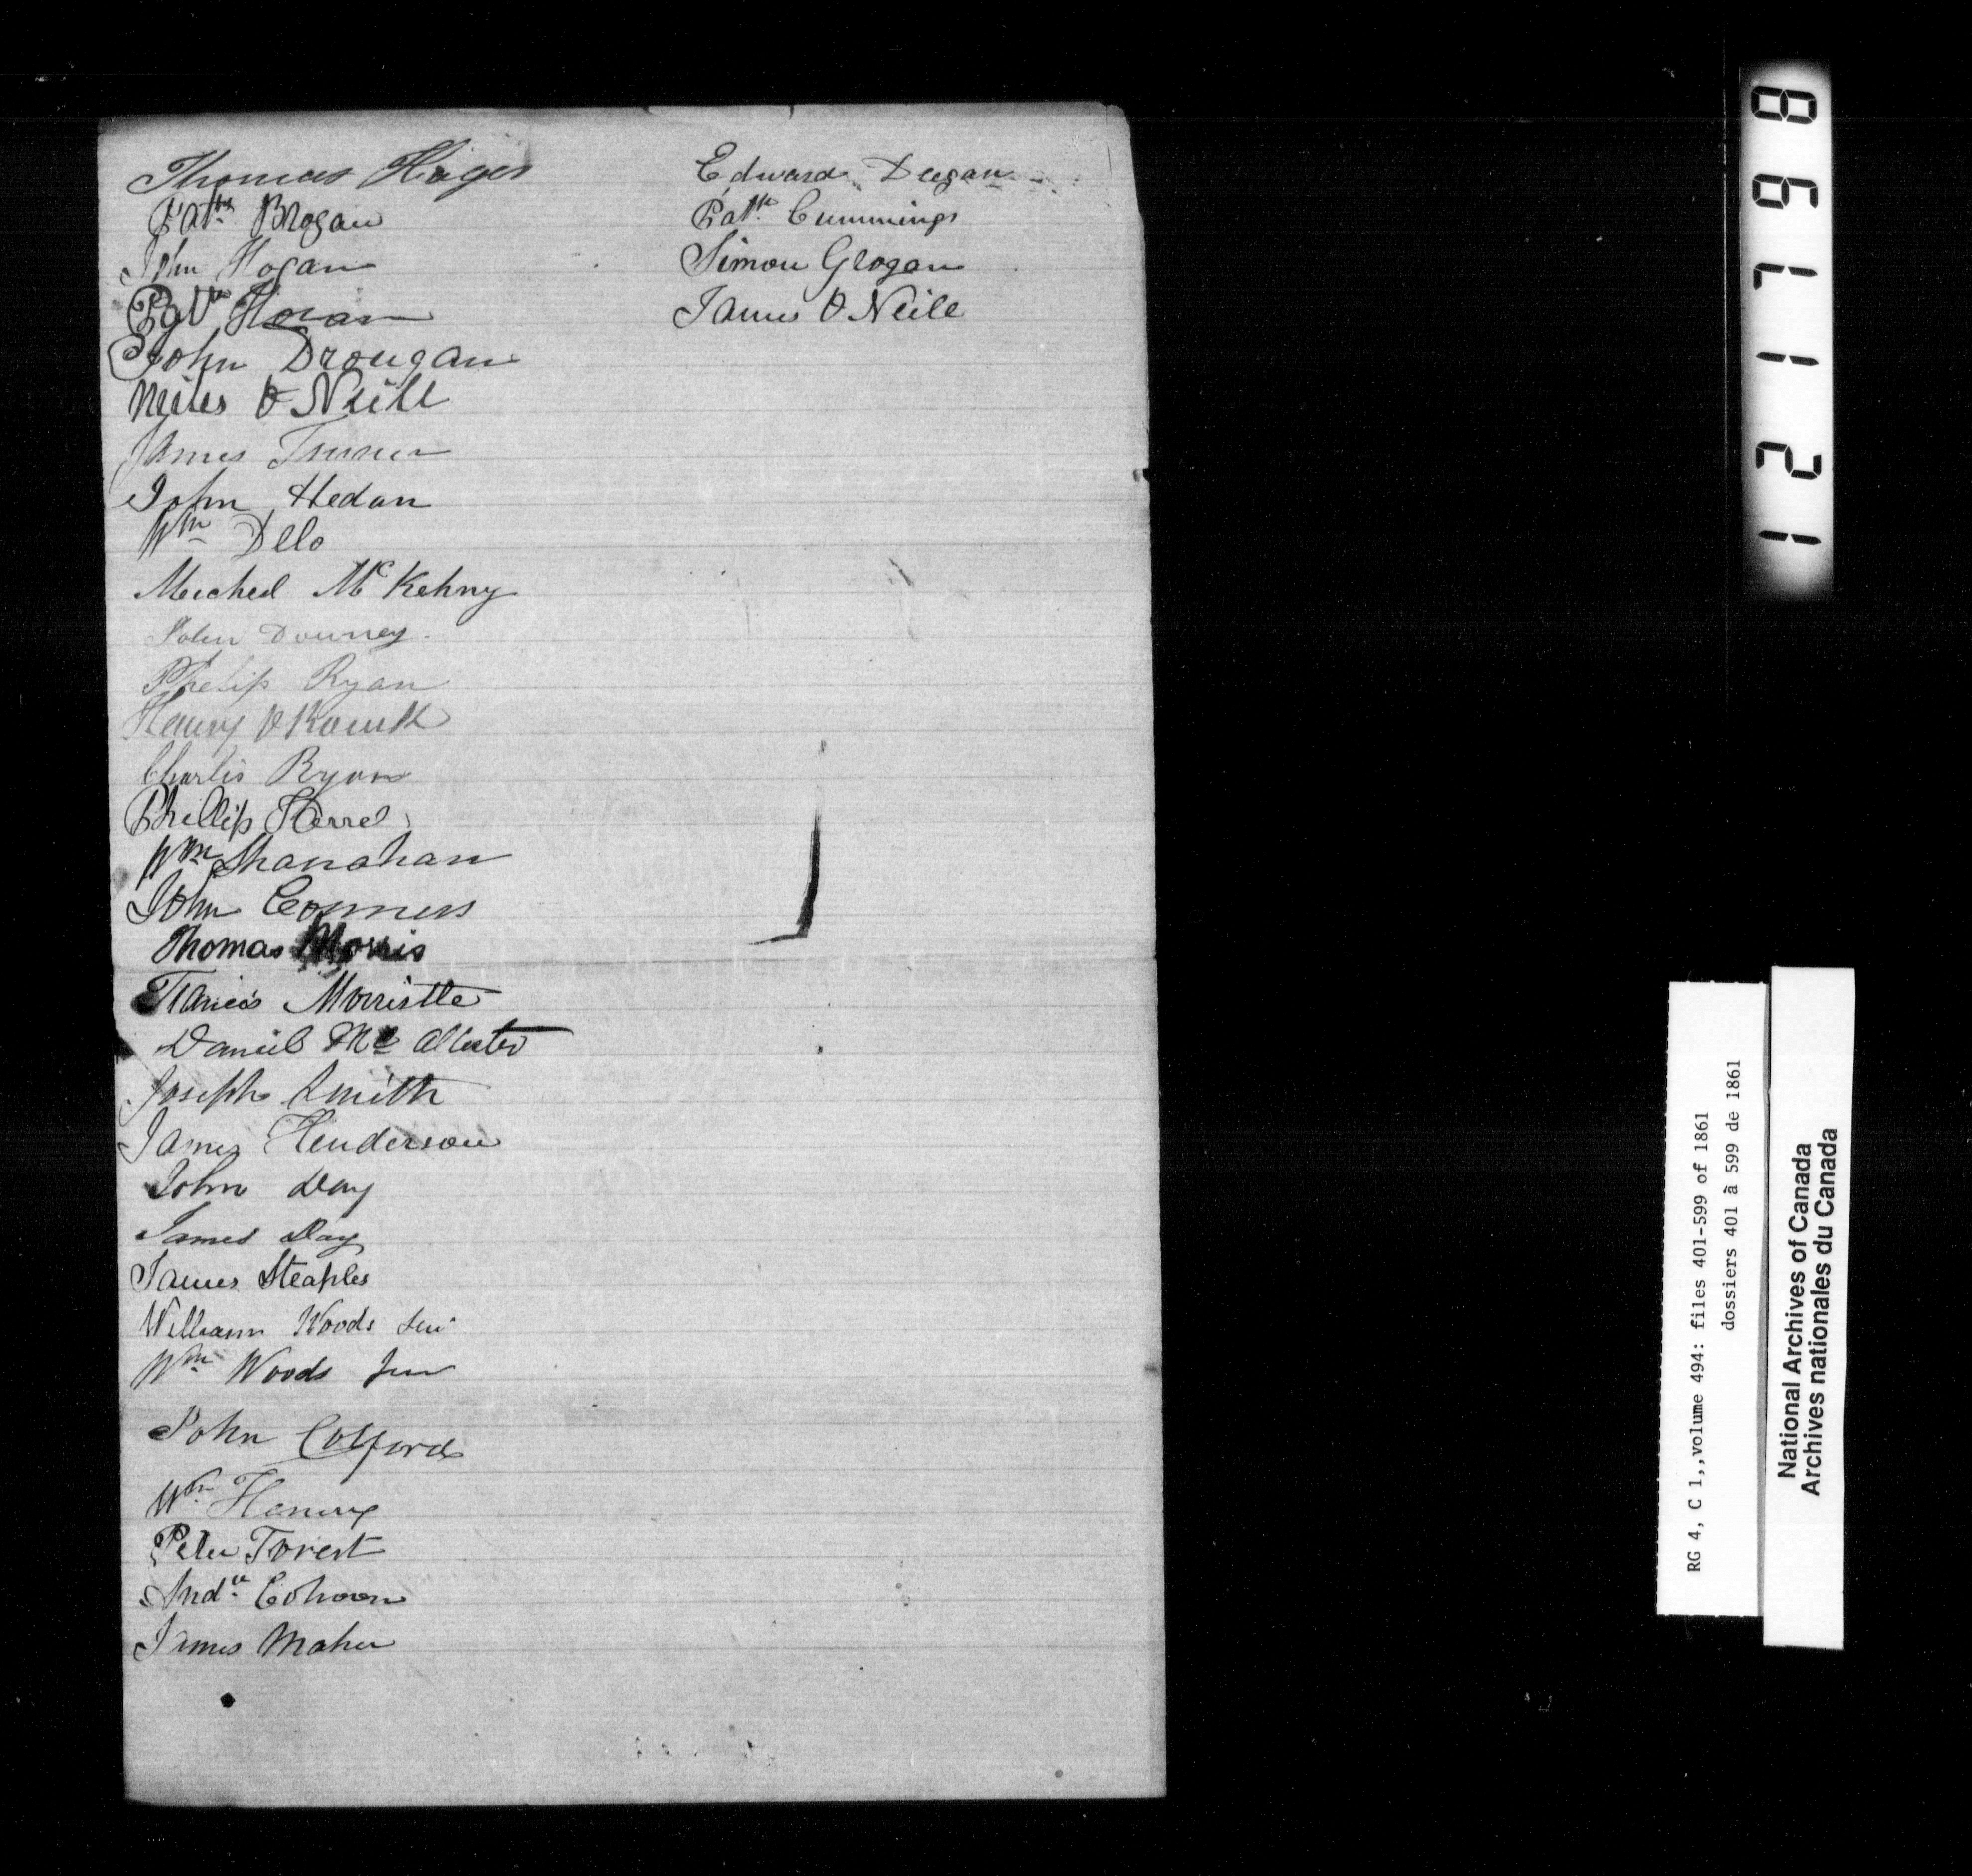 Thomas Hages
Patk Brogan
John Hogan
Patk Horan
John Drougan
Miles O Neill
James Turner
John Hedan
Wm Delo
Micheel McKehny
John Downey.
Phelip Ryan
Henry O
Charlis Ryan
Phillip Herrel
Wm Shanahan
John Conners
Thomas Morris
Francis Morristte
Daniel Mc Allester
Joseph Smith
James Henderson
John Day
James Day
James Steaples
William Woods Sen
Wm Woods Jun
John Colford
Wm Henery
Peter Forest
Andw Cohoon
James Maher
Edward Deegan
Patk Cummings
Simon Grogan
James O Neile
121798
RG 4, C 1,,volume 494: files 401-599 of 1861
dossiers 401 à 599 de 1861
National Archives of Canada
Archives nationales du Canada